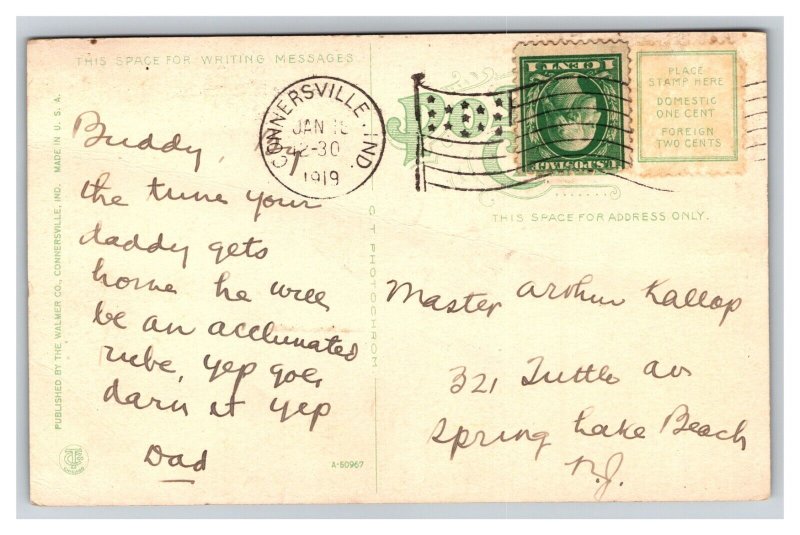 THIS SPACE FOR WRITING MESSAGES
Buddy, by
the time your
daddy gets
home he will
be an acclimated
rube, yep gol
darn it yep
Dad
CONNERSVILLE, IND.
JAN 1
2-30
1919
1 CENT 1
U.S. POSTAGE
PLACE
STAMP HERE
DOMESTIC
ONE CENT
FOREIGN
TWO CENTS
THIS SPACE FOR ADDRESS ONLY.
Master Arthur Kallop
321 Tuttle av
Spring Lake Beach
N.J.
PUBLISHED BY THE WALMER CO., CONNERSVILLE, IND. MADE IN U.S.A.
C T PHOTOCHROM
A-50967